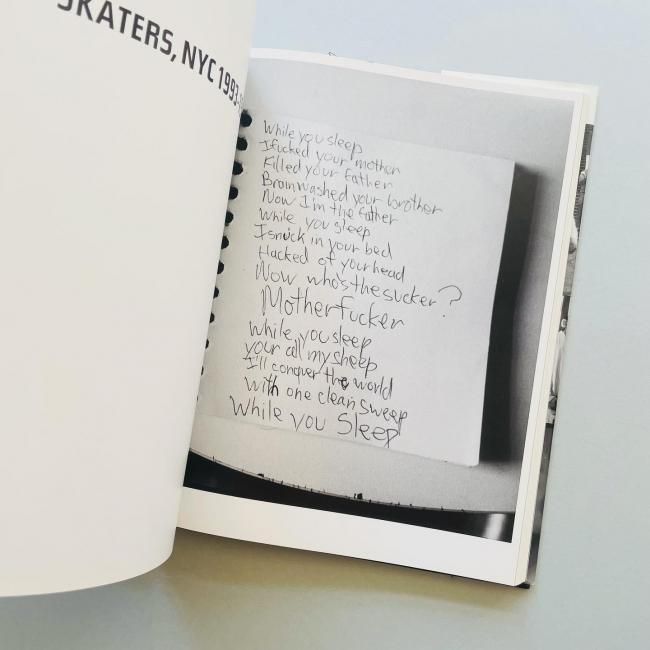 SKATERS, NYC 1993-
While you sleep
I fucked your mother
Filled your father
Brainwashed your brother
Now I'm the father
While you sleep
I snuck in your bed
Hacked of your head
Now who's the sucker?
Motherfucker
While you sleep
your all my sheep
I'll conquer the world
with one clean sweep
While you Sleep